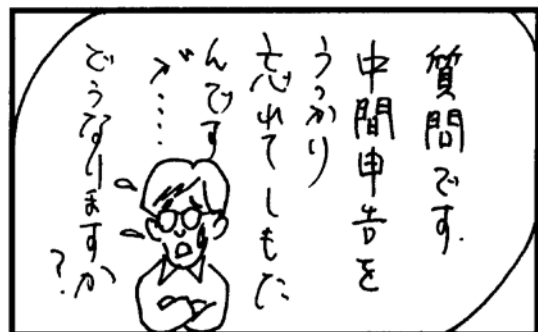 質問です.
中間申告を
うっかり
忘れてしもた
んです
が‥‥
どうなりますか?